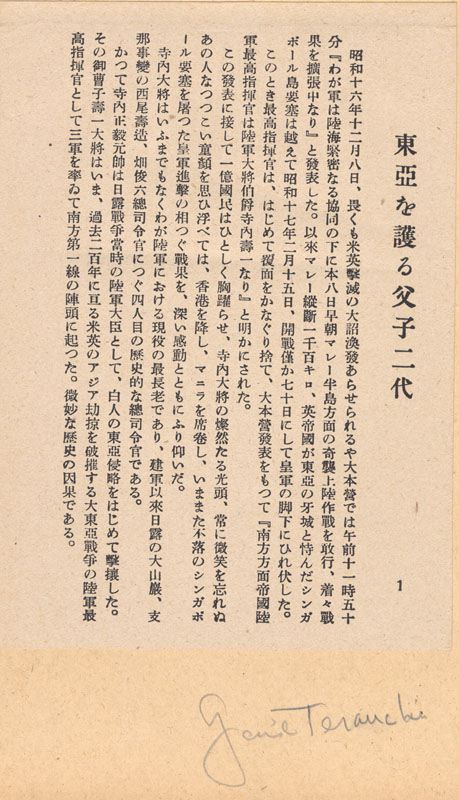 東亞を護る父子二代
1
昭和十六年十二月八日、畏くも米英擊滅の大詔渙發あらせられるや大本營では午前十一時五十
分『わが軍は陸海緊密なる協同の下に本八日早朝マレー半島方面の奇襲上陸作戰を敢行、着々戰
果を擴張中なり』と發表した。以來マレー縱斷一千百キロ、英帝國が東亞の牙城と恃んだシンガ
ポール島要塞は越えて昭和十七年二月十五日、開戰僅か七十日にして皇軍の脚下にひれ伏した。
このとき最高指揮官は、はじめて覆面をかなぐり捨て、大本營發表をもつて『南方方面帝國陸
軍最高指揮官は陸軍大將伯爵寺內壽一なり』と明かにされた。
この發表に接して一億國民はひとしく胸躍らせ、寺內大將の燦然たる光頭、常に微笑を忘れぬ
あの人なつつこい童顏を思ひ浮べては、香港を降し、マニラを席卷し、いままた不落のシンガポ
ール要塞を屠つた皇軍進擊の相つぐ戰果を、深い感動とともにふり仰いだ。
寺內大將はいふまでもなくわが陸軍における現役の最長老であり、建軍以來日露の大山巖、支
那事變の西尾壽造、畑俊六總司令官につぐ四人目の歷史的な總司令官である。
かつて寺內正毅元帥は日露戰爭當時の陸軍大臣として、白人の東亞侵略をはじめて擊攘した。
その御曹子壽一大將はいま、過去二百年に亙る米英のアジア劫掠を破摧する大東亞戰爭の陸軍最
高指揮官として三軍を率ゐて南方第一線の陣頭に起つた。微妙な歷史の因果である。
Gen'l Terauchi